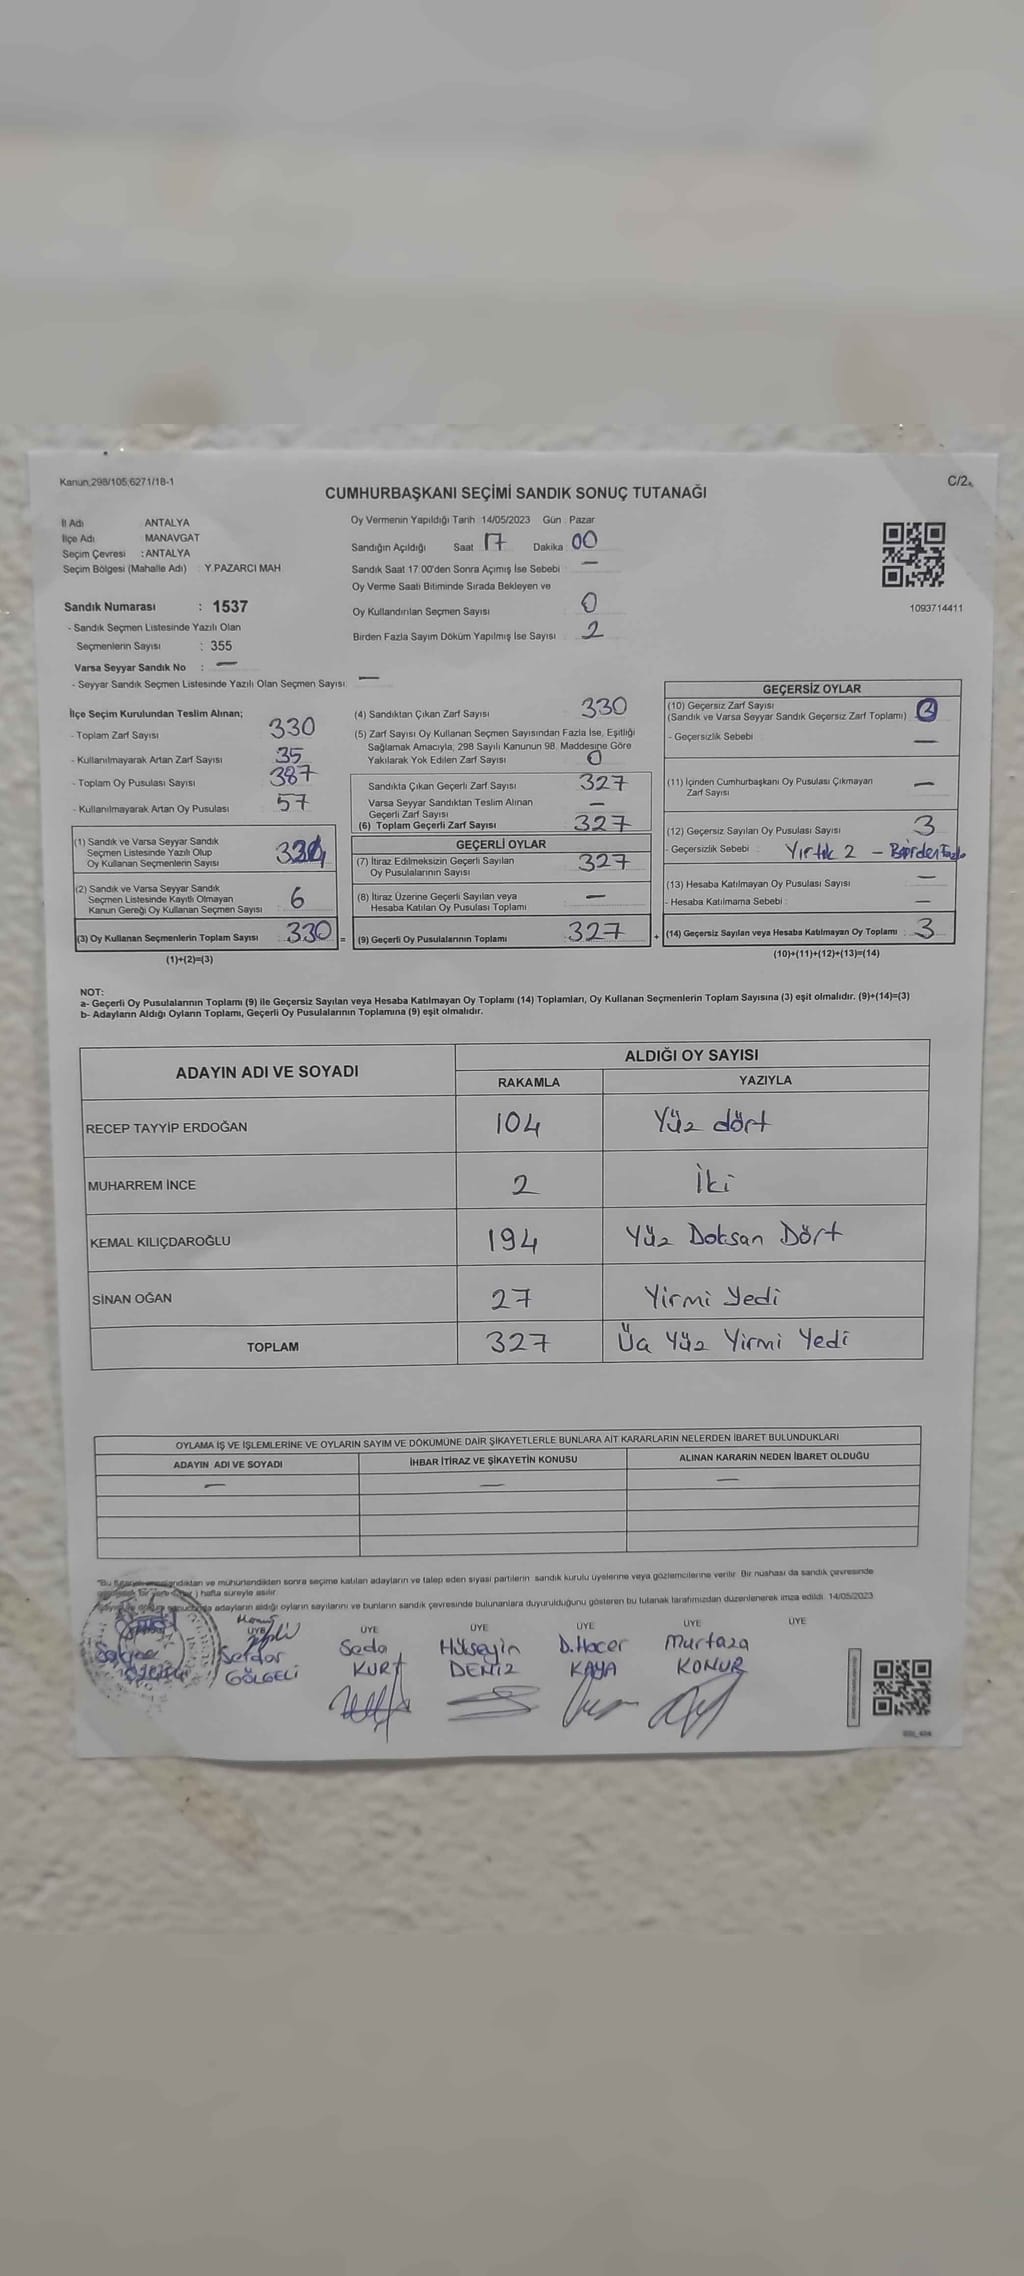 Kanun,298/105,6271/18-1
C/2
CUMHURBAŞKANI SEÇİMİ SANDIK SONUÇ TUTANAĞI
İl Adı : ANTALYA
İlçe Adı : MANAVGAT
Seçim Çevresi : ANTALYA
Seçim Bölgesi (Mahalle Adı) : Y.PAZARCI MAH
Sandık Numarası : 1537
- Sandık Seçmen Listesinde Yazılı Olan
Seçmenlerin Sayısı : 355
Varsa Seyyar Sandık No : —
- Seyyar Sandık Seçmen Listesinde Yazılı Olan Seçmen Sayısı: —
Oy Vermenin Yapıldığı Tarih 14/05/2023 Gün Pazar
Sandığın Açıldığı Saat 17 Dakika 00
Sandık Saat 17:00'den Sonra Açılmış İse Sebebi —
Oy Verme Saati Bitiminde Sırada Bekleyen ve
Oy Kullandırılan Seçmen Sayısı 0
Birden Fazla Sayım Döküm Yapılmış İse Sayısı 2
1093714411
İlçe Seçim Kurulundan Teslim Alınan;
- Toplam Zarf Sayısı 330
- Kullanılmayarak Artan Zarf Sayısı 35
- Toplam Oy Pusulası Sayısı 387
- Kullanılmayarak Artan Oy Pusulası 57
(1) Sandık ve Varsa Seyyar Sandık
Seçmen Listesinde Yazılı Olup
Oy Kullanan Seçmenlerin Sayısı
(2) Sandık ve Varsa Seyyar Sandık
Seçmen Listesinde Kayıtlı Olmayan
Kanun Gereği Oy Kullanan Seçmen Sayısı 6
(3) Oy Kullanan Seçmenlerin Toplam Sayısı 330 =
(1)+(2)=(3)
(4) Sandıktan Çıkan Zarf Sayısı 330
(5) Zarf Sayısı Oy Kullanan Seçmen Sayısından Fazla İse, Eşitliği
Sağlamak Amacıyla, 298 Sayılı Kanunun 98. Maddesine Göre
Yakılarak Yok Edilen Zarf Sayısı 0
Sandıkta Çıkan Geçerli Zarf Sayısı 327
Varsa Seyyar Sandıktan Teslim Alınan
Geçerli Zarf Sayısı —
(6) Toplam Geçerli Zarf Sayısı 327
GEÇERLİ OYLAR
(7) İtiraz Edilmeksizin Geçerli Sayılan
Oy Pusulalarının Sayısı 327
(8) İtiraz Üzerine Geçerli Sayılan veya
Hesaba Katılan Oy Pusulası Toplamı —
(9) Geçerli Oy Pusulalarının Toplamı 327 +
GEÇERSİZ OYLAR
(10) Geçersiz Zarf Sayısı
(Sandık ve Varsa Seyyar Sandık Geçersiz Zarf Toplamı)
- Geçersizlik Sebebi —
(11) İçinden Cumhurbaşkanı Oy Pusulası Çıkmayan
Zarf Sayısı —
(12) Geçersiz Sayılan Oy Pusulası Sayısı 3
- Geçersizlik Sebebi : Yırtık 2 - Birden Fazla
(13) Hesaba Katılmayan Oy Pusulası Sayısı —
- Hesaba Katılmama Sebebi : —
(14) Geçersiz Sayılan veya Hesaba Katılmayan Oy Toplamı : 3
(10)+(11)+(12)+(13)=(14)
NOT:
a- Geçerli Oy Pusulalarının Toplamı (9) ile Geçersiz Sayılan veya Hesaba Katılmayan Oy Toplamı (14) Toplamları, Oy Kullanan Seçmenlerin Toplam Sayısına (3) eşit olmalıdır. (9)+(14)=(3)
b- Adayların Aldığı Oyların Toplamı, Geçerli Oy Pusulalarının Toplamına (9) eşit olmalıdır.
ADAYIN ADI VE SOYADI
ALDIĞI OY SAYISI
RAKAMLA YAZIYLA
RECEP TAYYİP ERDOĞAN 104 Yüz dört
MUHARREM İNCE 2 İki
KEMAL KILIÇDAROĞLU 194 Yüz Doksan Dört
SİNAN OĞAN 27 Yirmi Yedi
TOPLAM 327 Üç Yüz Yirmi Yedi
OYLAMA İŞ VE İŞLEMLERİNE VE OYLARIN SAYIM VE DÖKÜMÜNE DAİR ŞİKAYETLERLE BUNLARA AİT KARARLARIN NELERDEN İBARET BULUNDUKLARI
ADAYIN ADI VE SOYADI İHBAR İTİRAZ VE ŞİKAYETİN KONUSU ALINAN KARARIN NEDEN İBARET OLDUĞU
— — —
ve mühürlendikten sonra seçime katılan adayların ve talep eden siyasi partilerin sandık kurulu üyelerine veya gözlemcilerine verilir. Bir nüshası da sandık çevresinde
) hafta süreyle asılır.
adayların aldığı oyların sayılarını ve bunların sandık çevresinde bulunanlara duyurulduğunu gösteren bu tutanak tarafımızdan düzenlenerek imza edildi. 14/05/2023
ÜYE ÜYE ÜYE ÜYE ÜYE ÜYE
Serdar Seda Hüseyin D.Hacer Murtaza
GÖLGELİ KURT DENİZ KAYA KONUR